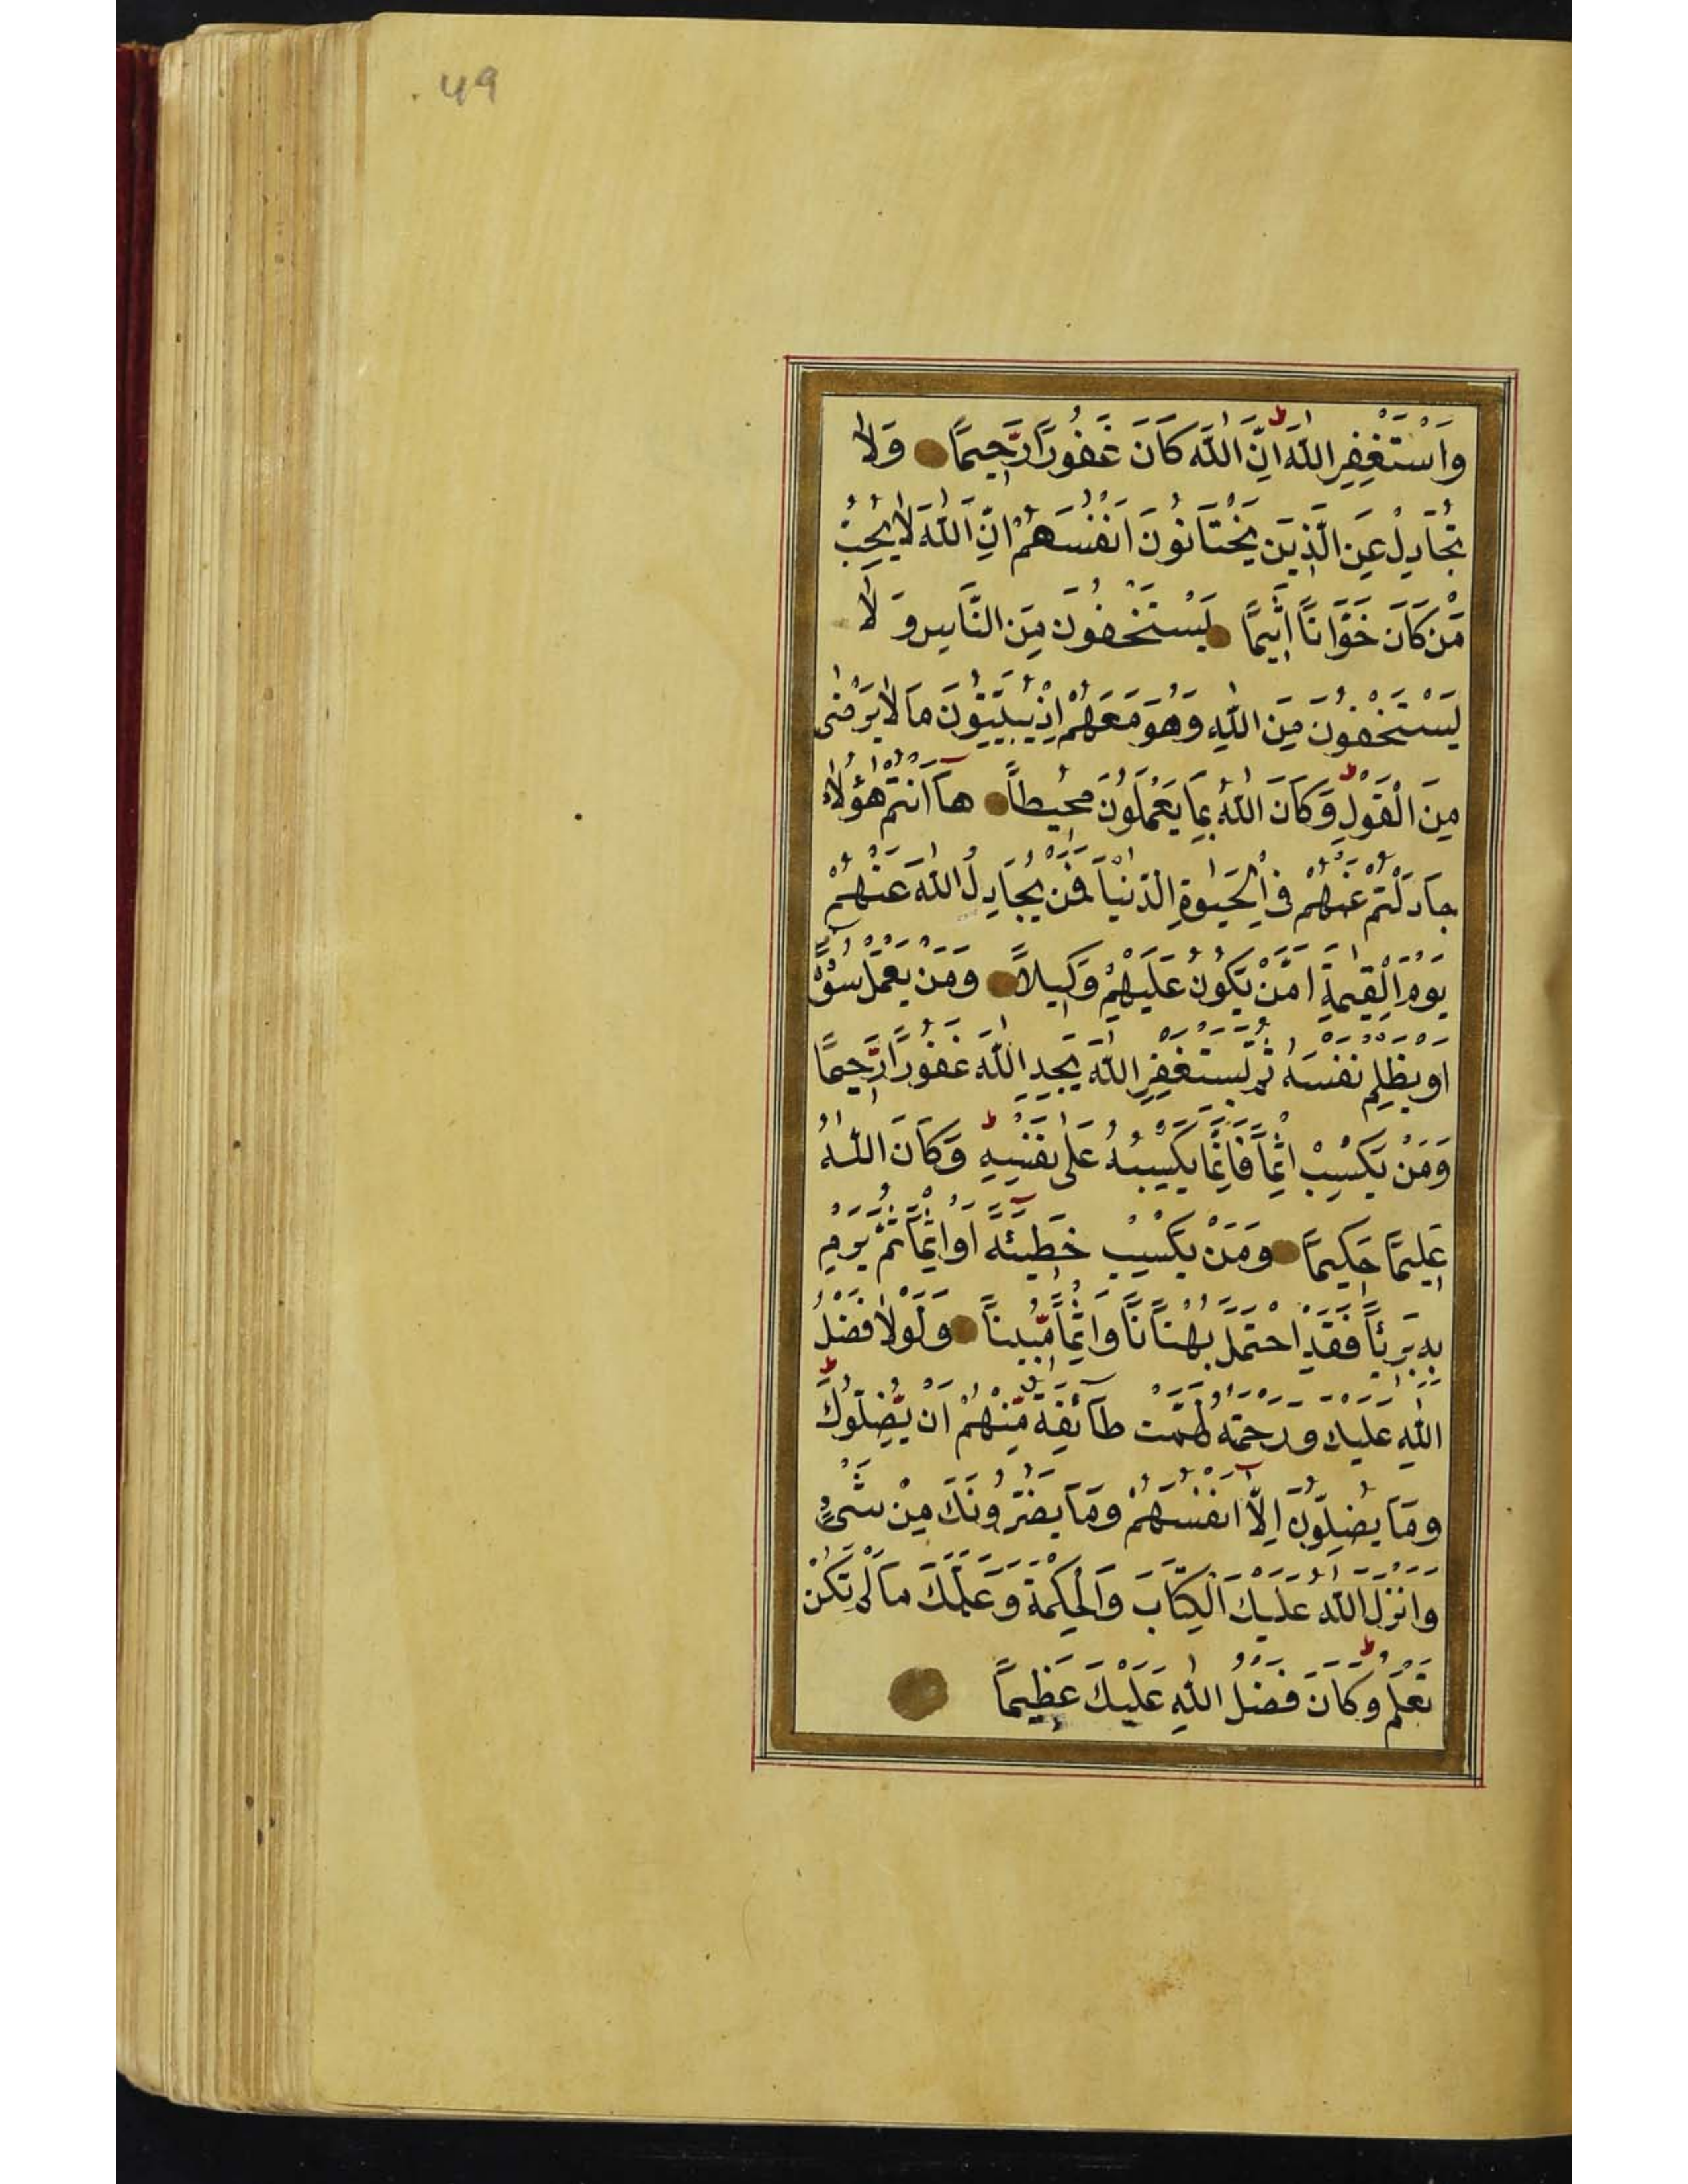 49
وَاسْتَغْفِرِ اللّٰهَ اِنَّ اللّٰهَ كَانَ غَفُورًا رَّحِيمًا وَلَا
تُجَادِلْ عَنِ الَّذِينَ يَخْتَانُونَ اَنْفُسَهُمْ اِنَّ اللّٰهَ لَا يُحِبُّ
مَنْ كَانَ خَوَّانًا اَثِيمًا يَسْتَخْفُونَ مِنَ النَّاسِ وَلَا
يَسْتَخْفُونَ مِنَ اللّٰهِ وَهُوَ مَعَهُمْ اِذْ يُبَيِّتُونَ مَا لَا يَرْضٰى
مِنَ الْقَوْلِ وَكَانَ اللّٰهُ بِمَا يَعْمَلُونَ مُحِيطًا هَآ اَنْتُمْ هٰؤُلَاءِ
جَادَلْتُمْ عَنْهُمْ فِي الْحَيٰوةِ الدُّنْيَا فَمَنْ يُجَادِلُ اللّٰهَ عَنْهُمْ
يَوْمَ الْقِيٰمَةِ اَمَّنْ يَكُونُ عَلَيْهِمْ وَكِيلًا وَمَنْ يَعْمَلْ سُوٓءًا
اَوْ يَظْلِمْ نَفْسَهُ ثُمَّ يَسْتَغْفِرِ اللّٰهَ يَجِدِ اللّٰهَ غَفُورًا رَّحِيمًا
وَمَنْ يَكْسِبْ اِثْمًا فَاِنَّمَا يَكْسِبُهُ عَلٰى نَفْسِهِ وَكَانَ اللّٰهُ
عَلِيمًا حَكِيمًا وَمَنْ يَكْسِبْ خَطِيٓئَةً اَوْ اِثْمًا ثُمَّ يَرْمِ
بِهِ بَرِيئًا فَقَدِ احْتَمَلَ بُهْتَانًا وَاِثْمًا مُّبِينًا وَلَوْلَا فَضْلُ
اللّٰهِ عَلَيْكَ وَرَحْمَتُهُ لَهَمَّتْ طَآئِفَةٌ مِّنْهُمْ اَنْ يُّضِلُّوكَ
وَمَا يُضِلُّونَ اِلَّآ اَنْفُسَهُمْ وَمَا يَضُرُّونَكَ مِنْ شَيْءٍ
وَاَنْزَلَ اللّٰهُ عَلَيْكَ الْكِتَابَ وَالْحِكْمَةَ وَعَلَّمَكَ مَا لَمْ تَكُنْ
تَعْلَمُ وَكَانَ فَضْلُ اللّٰهِ عَلَيْكَ عَظِيمًا